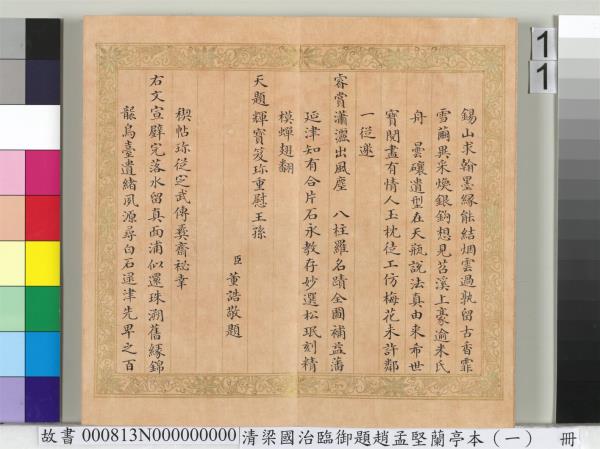 錫山求翰墨緣能結烟雲過孰留古香霏
雪繭異采煥銀鉤想見苕溪上豪逾米氏
舟　曇礦遺型在天瓶說法真由来希世
寶閱盡有情人玉枕徒工仿梅花未許鄰
一經邀
睿賞瀟灑出風塵　八柱羅名蹟全圖補益藩
延津知有合片石永教存妙選松珉刻精
模蟬翅翻
天題輝寶笈珍重慰王孫
臣董誥敬題
禊帖珍從定武傳彝齋秘幸
右文宣璧完落水留真面浦似還珠溯舊緣錦
龍烏臺遺緒夙源尋白石逕津先畀之百
11
故書 000813N000000000 清梁國治臨御題趙孟堅蘭亭本（一）　冊